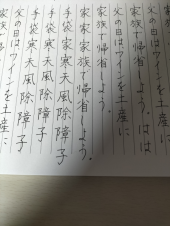 家族で帰省しよう。
父の日はワインを土産に
家族で帰省しよう。はは
父の日はワインを土産に
家家家族で帰省しよう。
手袋家寒天風除障子
手袋寒天風除障子
手袋寒天風除障子